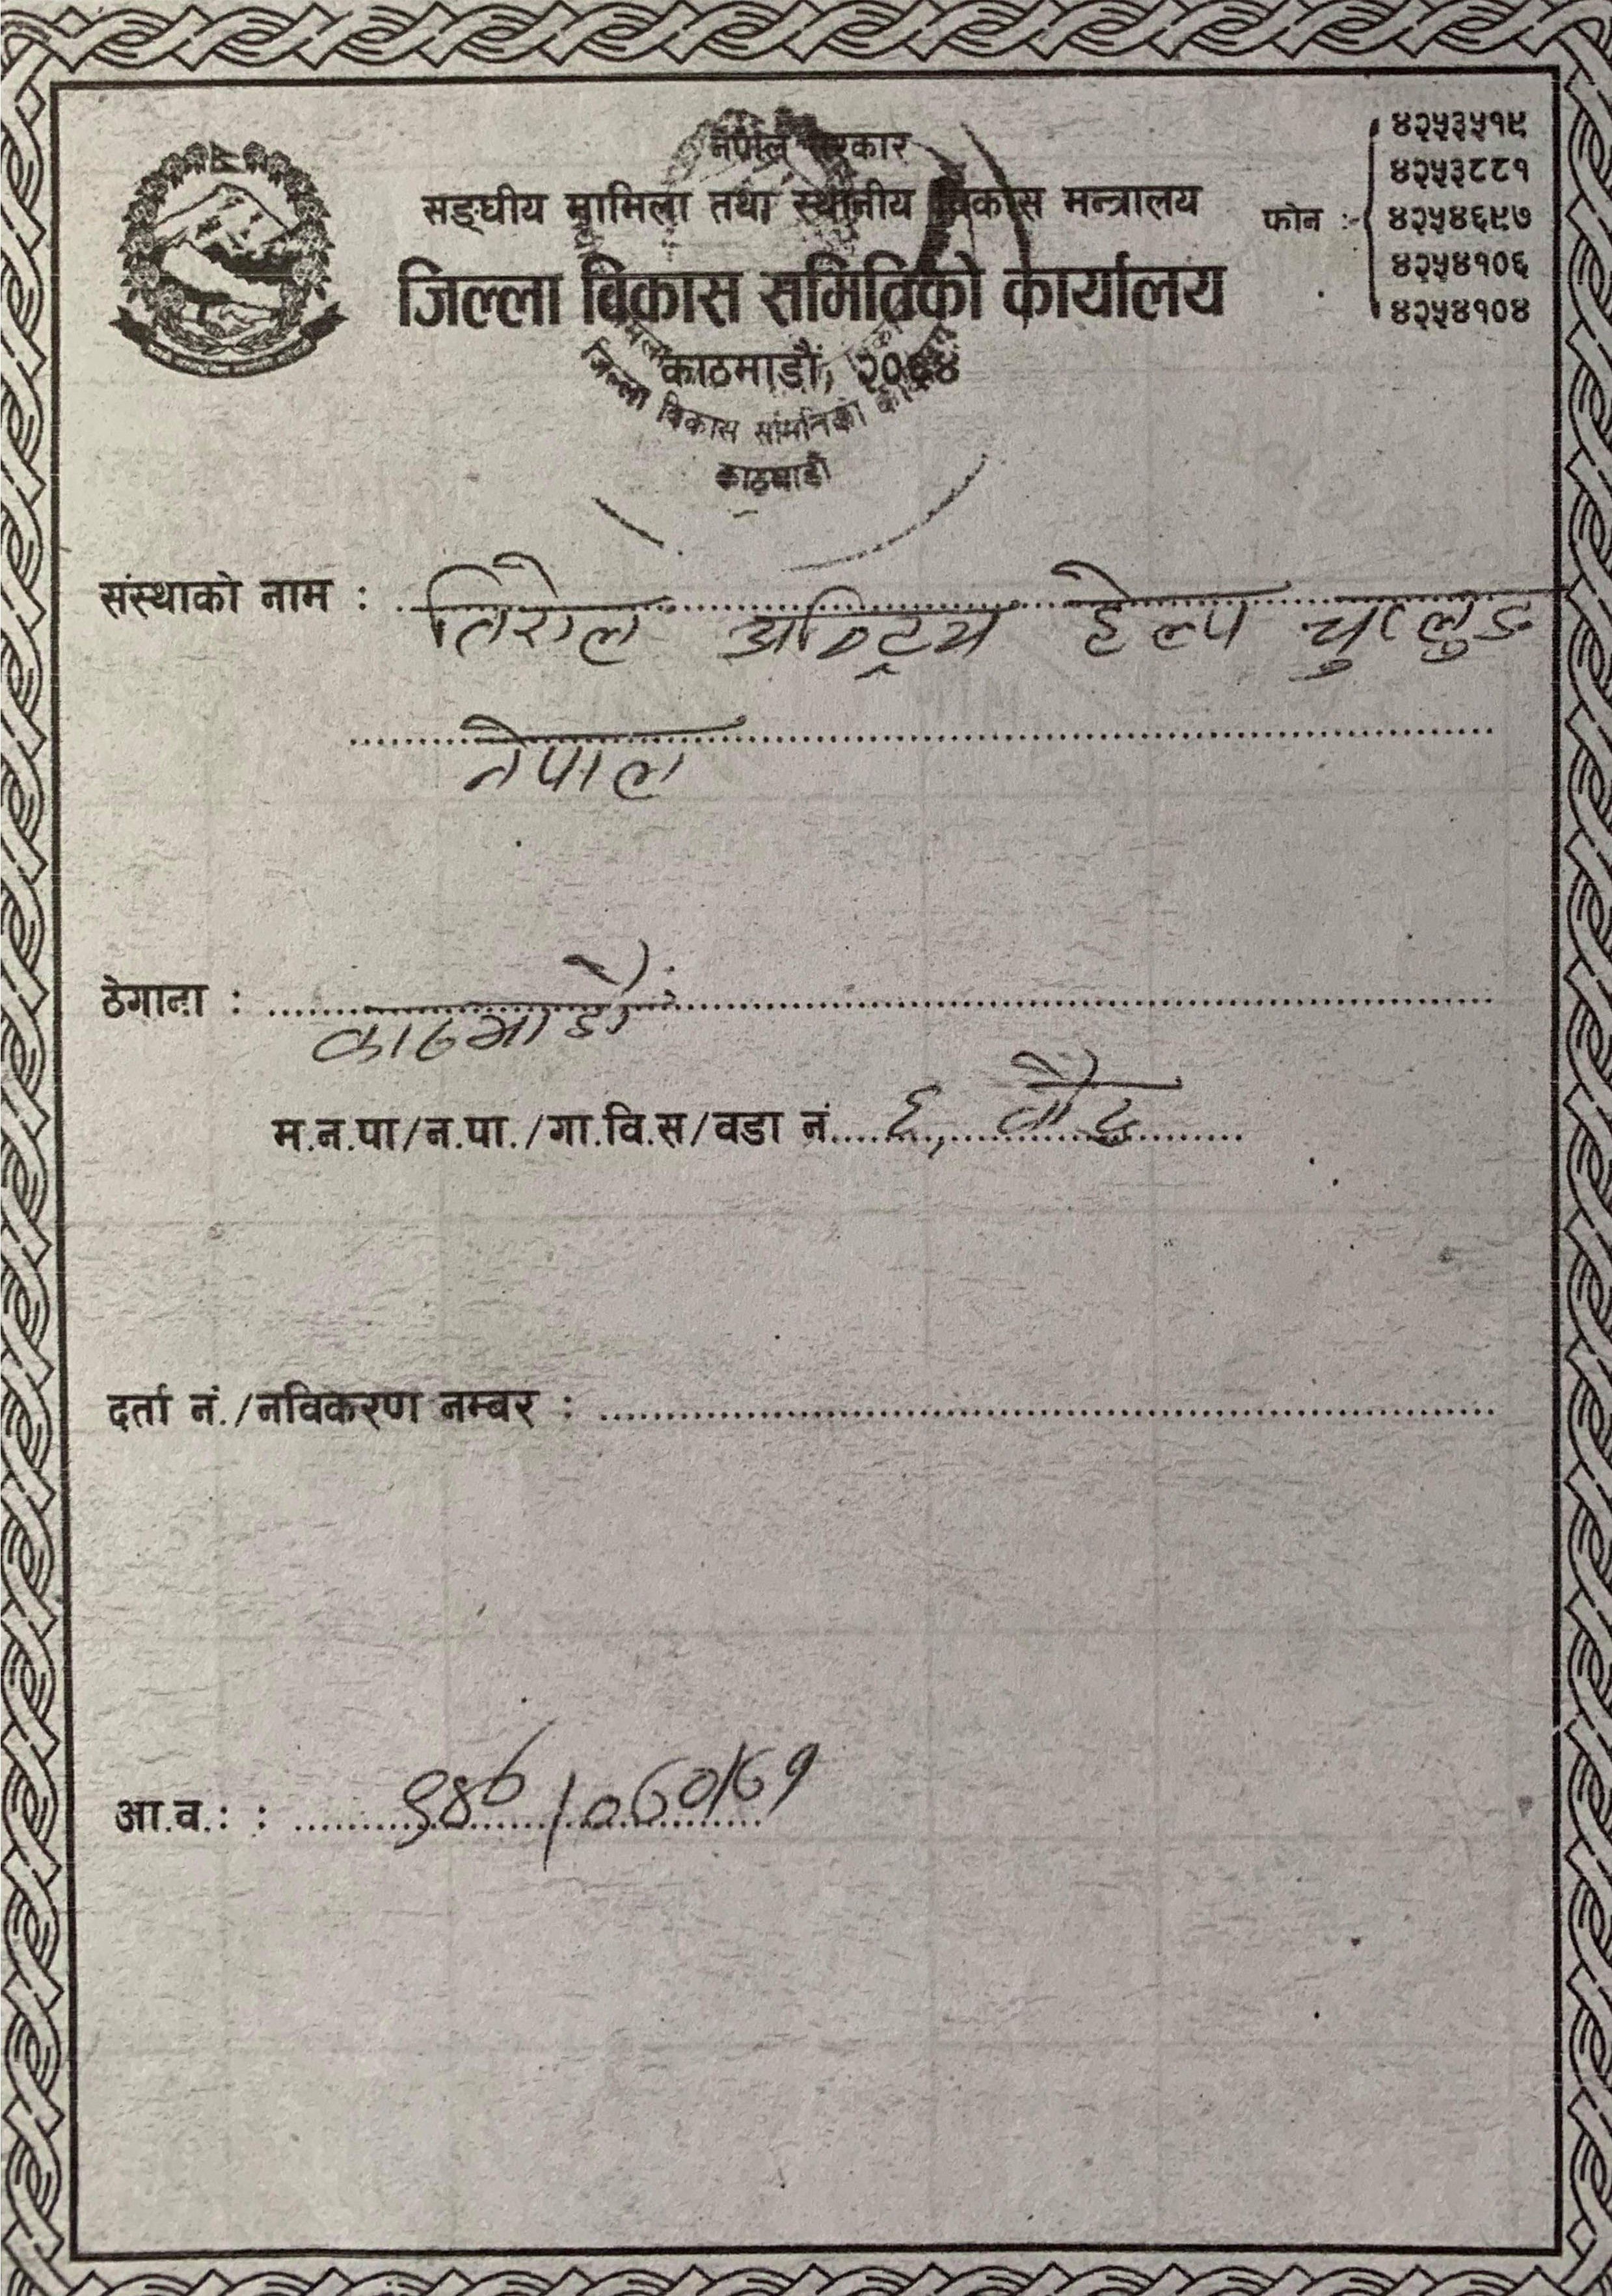 नेपाल सरकार
सङ्घीय मामिला तथा स्थानीय विकास मन्त्रालय
जिल्ला विकास समितिको कार्यालय
काठमाडौं, २०६४
फोन :-
४२५३५१९
४२५३८८१
४२५४६९७
४२५४१०६
४२५४१०४
जिल्ला विकास समितिको
काठमाडौं
संस्थाको नाम : तिरोल अष्ट्रिया हेल्प चुल्लुङ
नेपाल
ठेगाना : काठमाडौं
म.न.पा/न.पा./गा.वि.स/वडा नं. ६, बौद्ध
दर्ता नं./नविकरण नम्बर :
आ.व.: : /०७०/७१